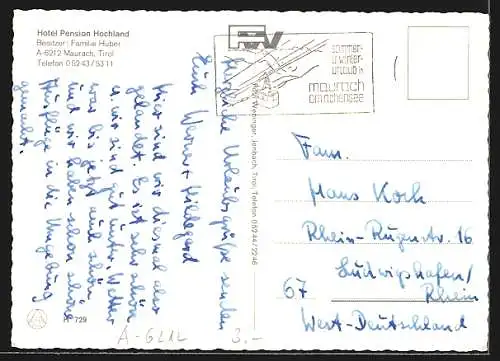 Hotel Pension Hochland
Besitzer: Familie Huber
A-6212 Maurach, Tirol
Telefon 05243/5311
sommer-
u. winter-
urlaub in
maurach
am achensee
Herzliche Urlaubsgrüße senden
Euch Werner + Hildegard
Hier sind wir diesmal also
gelandet. Es ist sehr schön
u. wir sind gut unter. Wetter
war bis jetzt auch schön
und wir haben schon schöne
Ausflüge in die Umgebung
gemacht.
Jenbach, Tirol, Telefon 05244/2246
Fam.
Hans Koch
Rhein-Rugenstr. 16
Ludwigshafen/
67 Rhein
West-Deutschland
729
A-6212
3.-